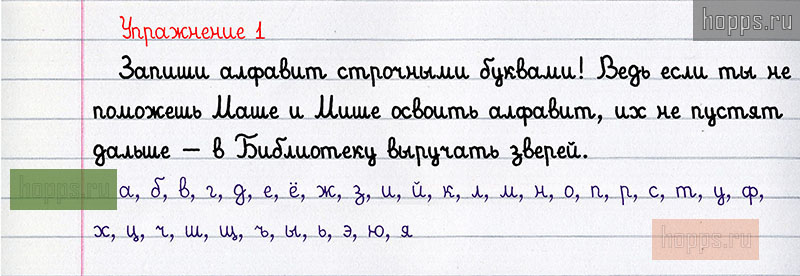 hopps.ru
Упражнение 1
Запиши алфавит строчными буквами! Ведь если ты не
поможешь Маше и Мише освоить алфавит, их не пустят
дальше – в Библиотеку выручать зверей.
hopps.ru а, б, в, г, д, е, ё, ж, з, и, й, к, л, м, н, о, п, р, с, т, у, ф,
х, ц, ч, ш, щ, ъ, ы, ь, э, ю, я
hopps.ru